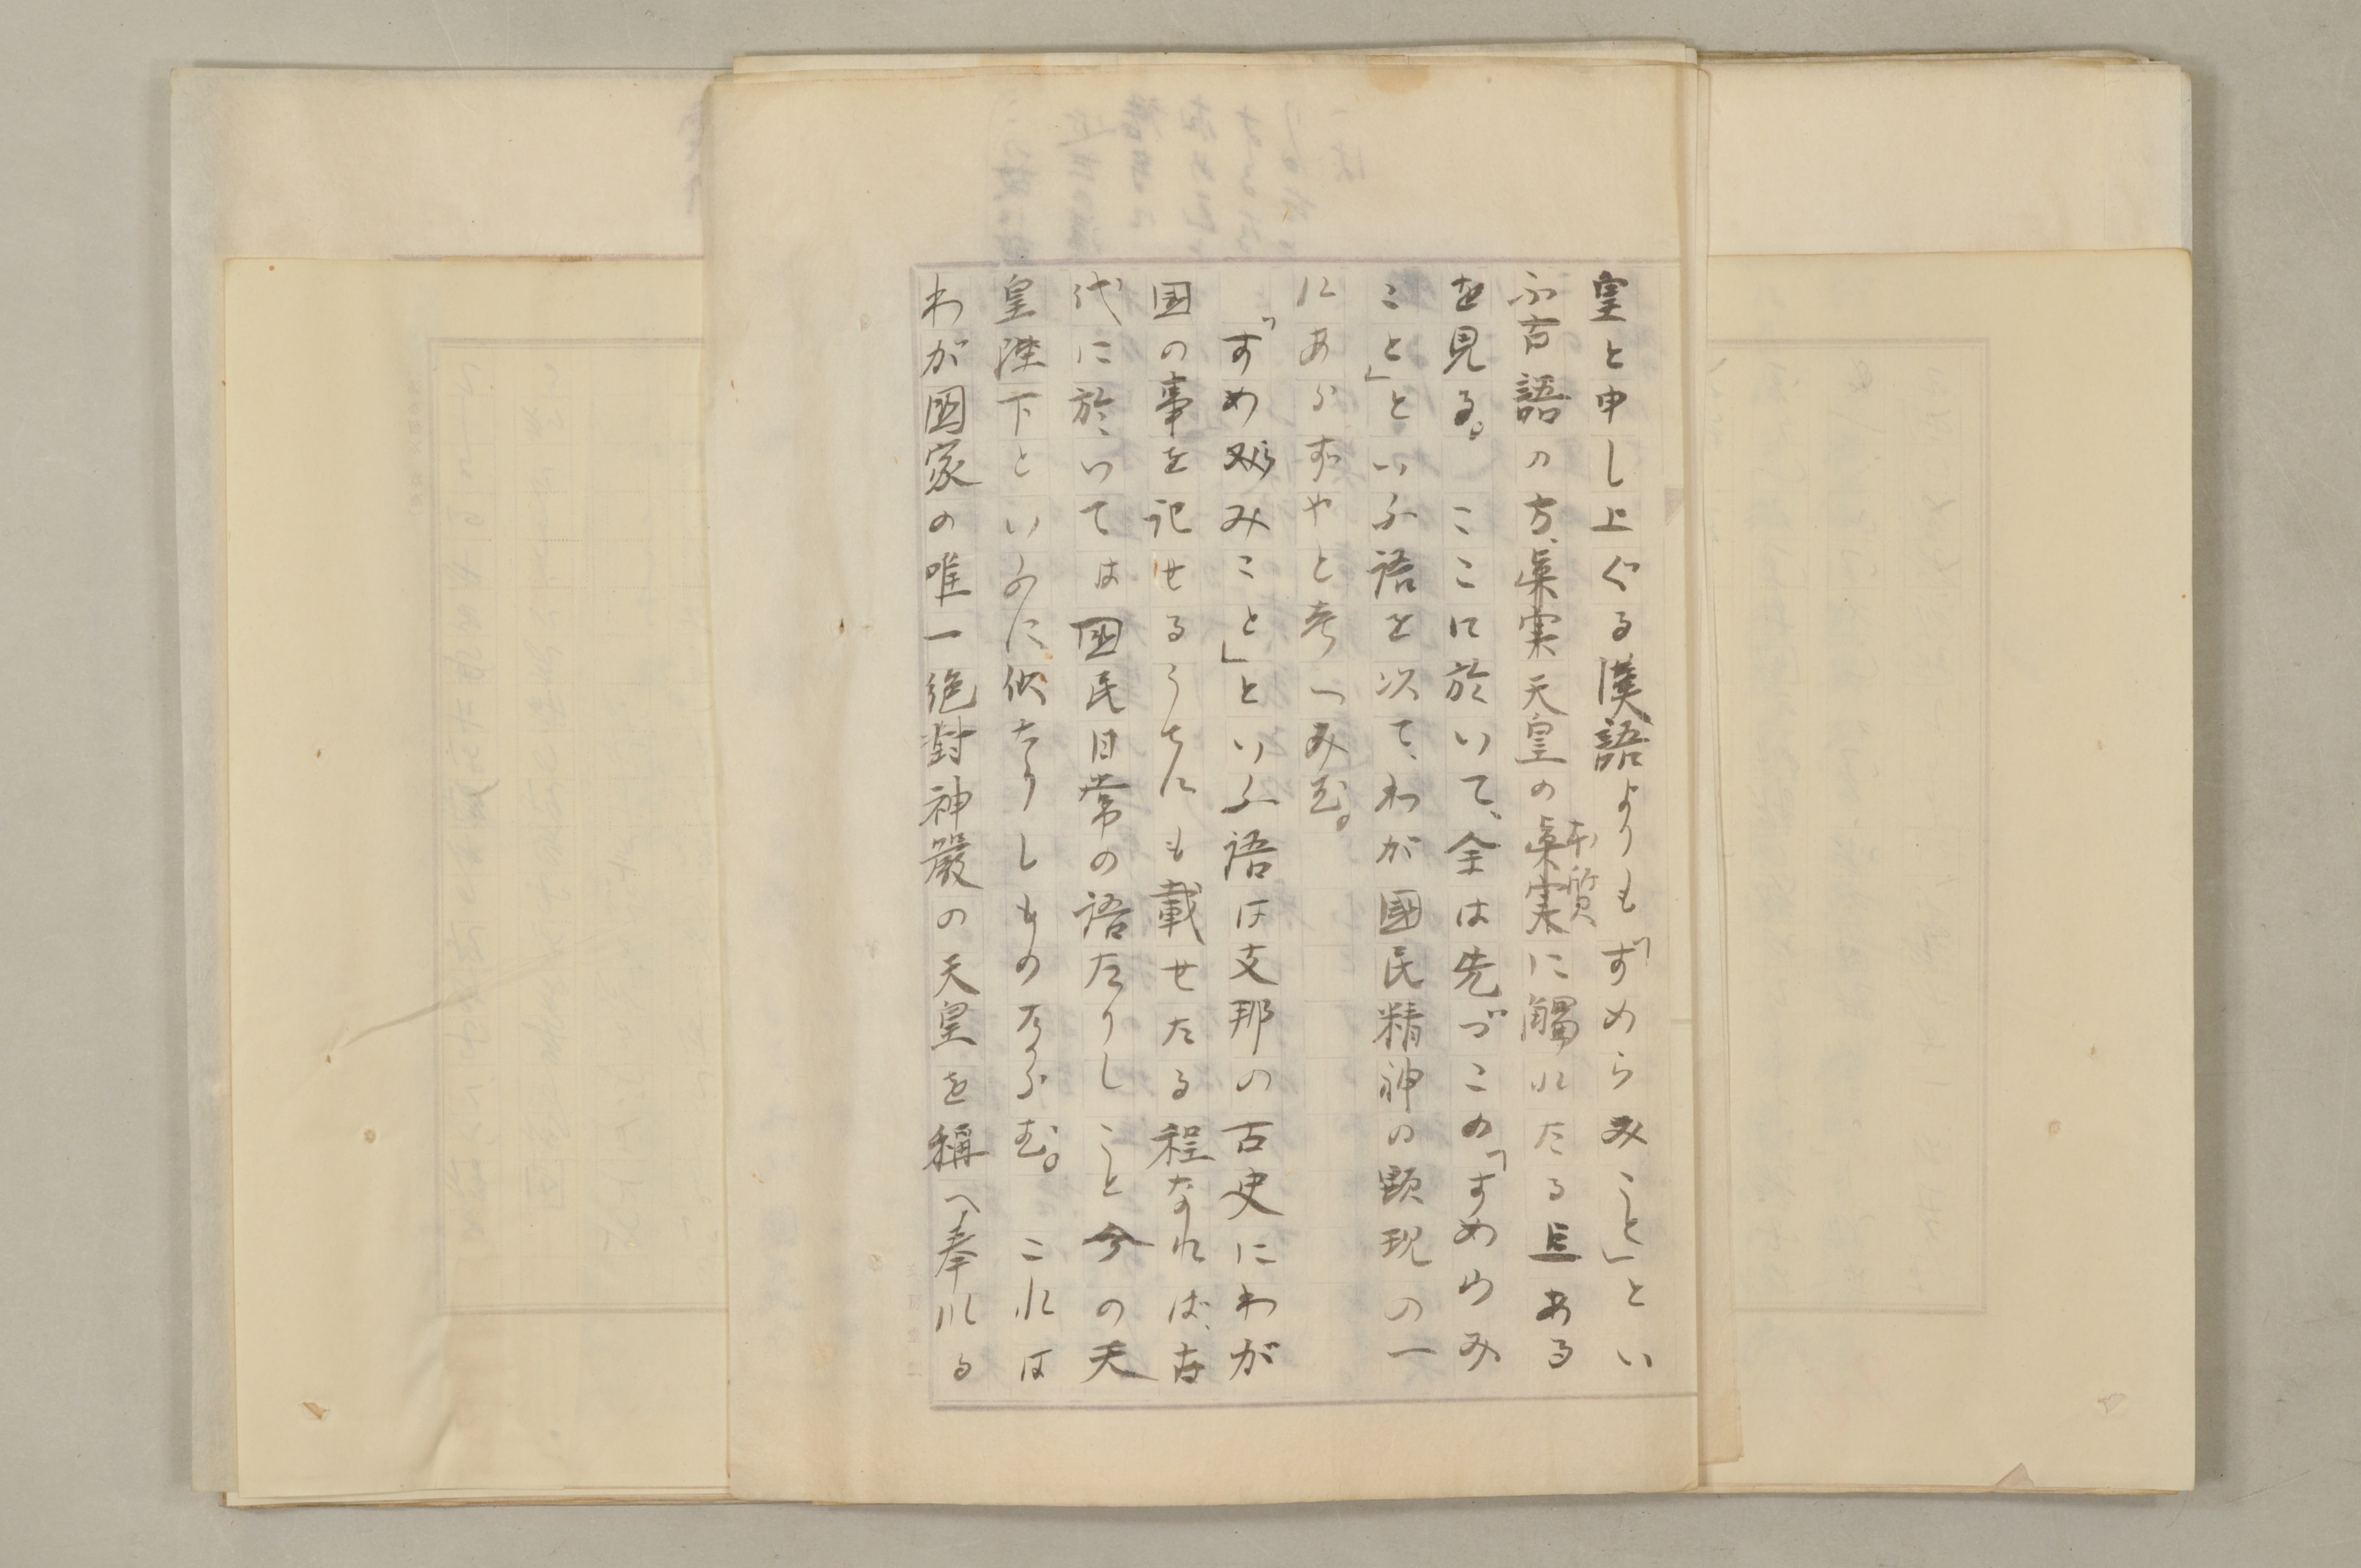 皇と申し上ぐる漢語よりも「すめらみこと」とい
ふ古語の方、眞実天皇の眞実に觸れたる点ある
本質
を見る。ここに於いて、余は先づこの「すめらみ
こと」といふ語を以て、わが國民精神の顕現の一
にあらずやと考へみむ。
「すめらみこと」といふ語は支那の古史にわが
国の事を記せるうちにも載せたる程なれば、古
代に於いては國民日常の語たりしこと今の天
皇陛下といふに似たりしものならむ。これは
わが國家の唯一絶對神嚴の天皇を稱へ奉れる